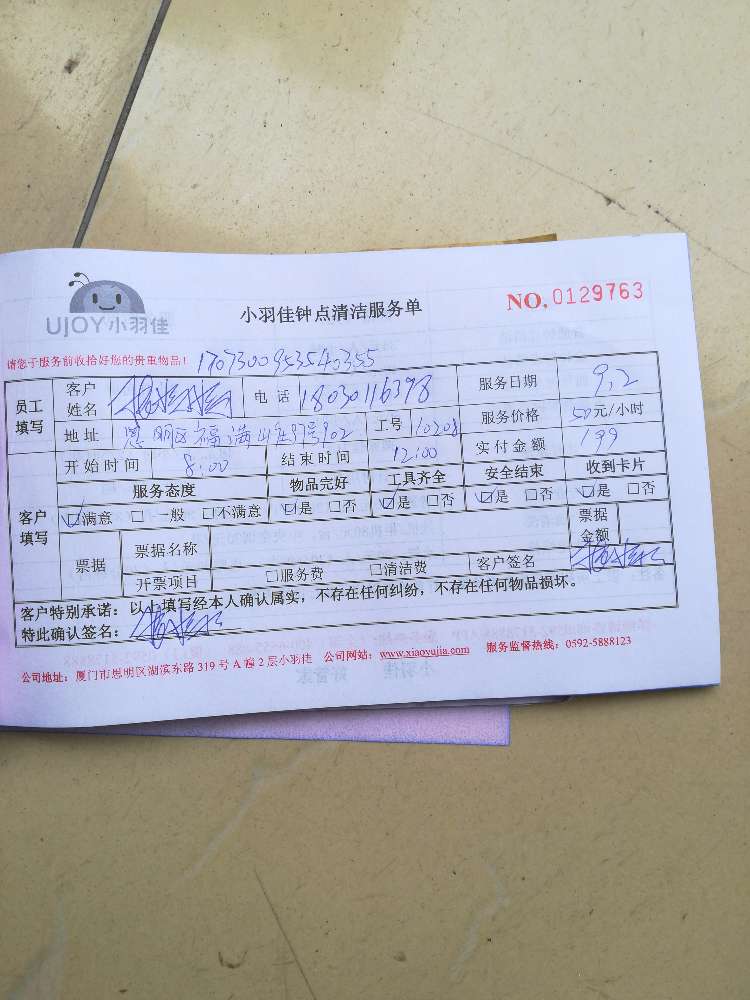 UJOY小羽佳
小羽佳钟点清洁服务单
NO. 0129763
请您于服务前收拾好您的贵重物品! 1707300953540355
员工填写 客户姓名 电话 18030116398 服务日期 9.2
地址 思明区福满山庄 902 工号 110208 服务价格 50元/小时
开始时间 8:00 结束时间 12:00 实付金额 199
客户填写 服务态度 物品完好 工具齐全 安全结束 收到卡片
☑满意 □一般 □不满意 ☑是 □否 ☑是 □否 ☑是 □否 ☑是 □否
票据 票据名称 票据金额
开票项目 □服务费 □清洁费 客户签名
客户特别承诺:以上填写经本人确认属实,不存在任何纠纷,不存在任何物品损坏。
特此确认签名:
公司地址:厦门市思明区湖滨东路 319 号 A 幢 2 层小羽佳 公司网站:www.xiaoyujia.com 服务监督热线:0592-5888123